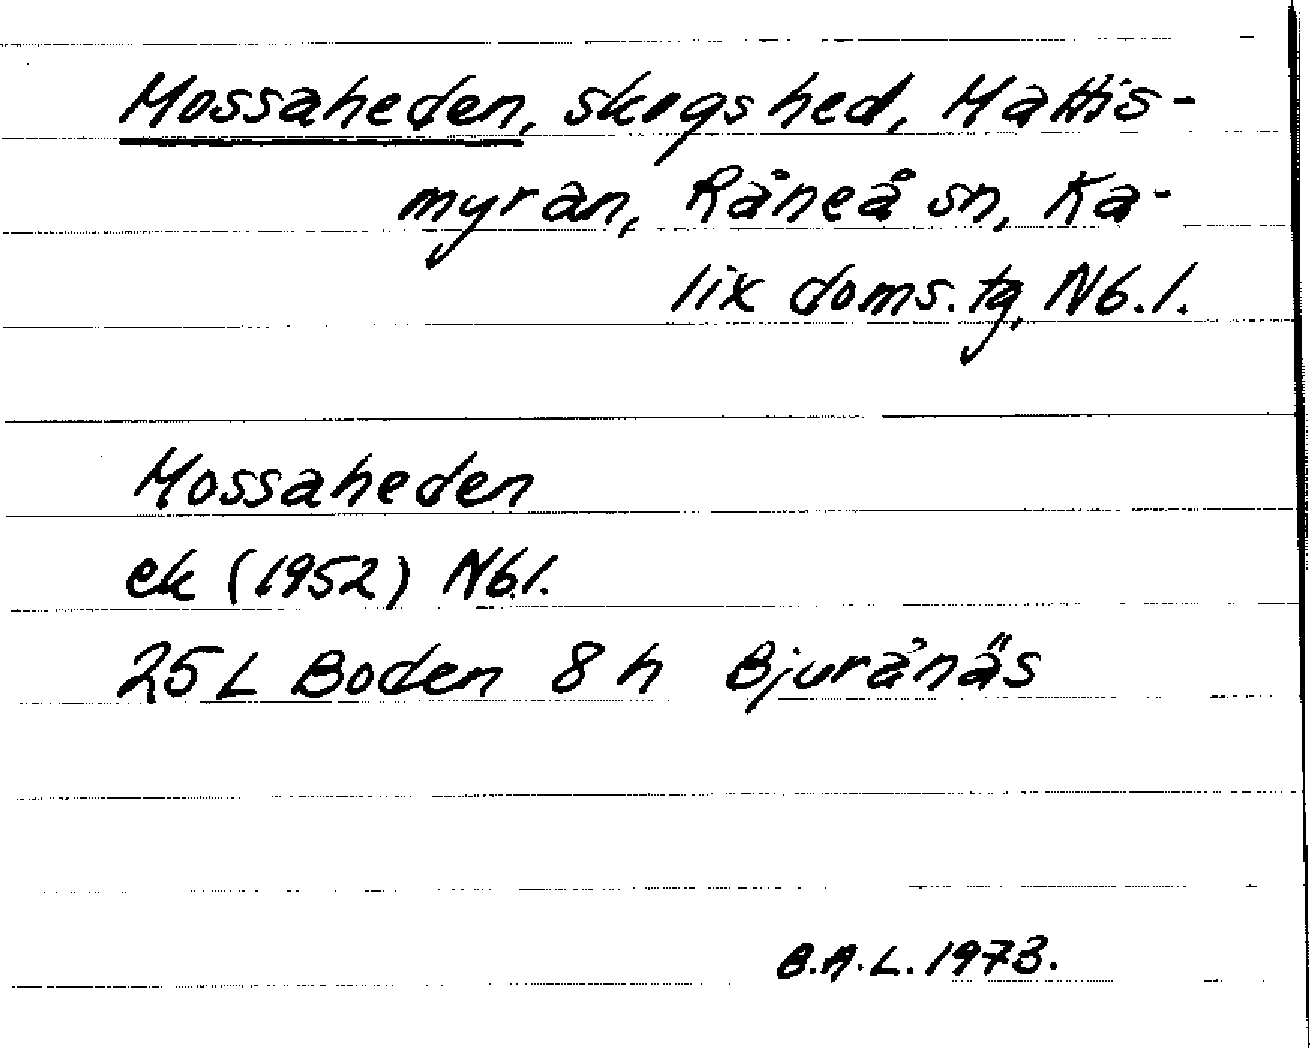 Mossaheden, skogshed, Mattis-
myran, Råneå sn, Ka-
lix doms. tg, Nb. l.
Mossaheden
ek (1952) Nb.l.
25 L Boden 8 h Bjurånäs
B.A.L. 1973.